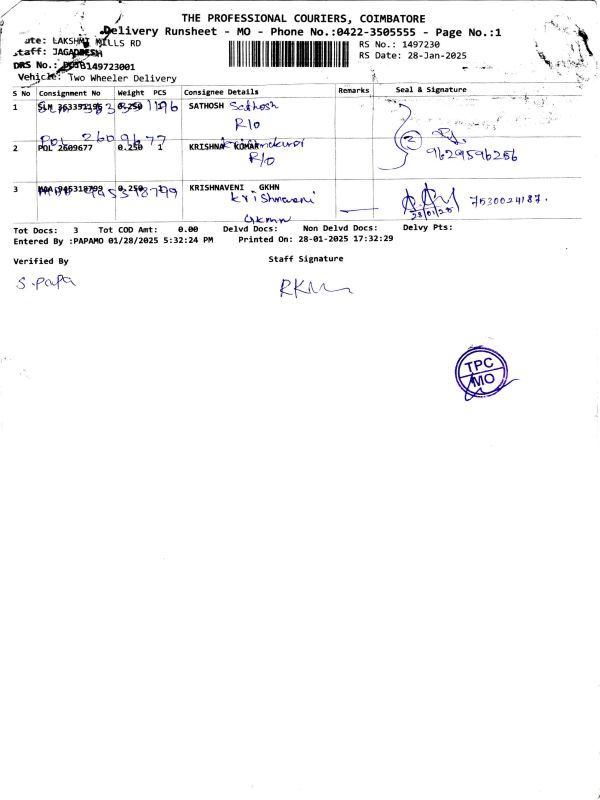 THE PROFESSIONAL COURIERS, COIMBATORE
Delivery Runsheet - MO - Phone No.:0422-3505555 - Page No.:1
ute: LAKSHMI MILLS RD
RS No.: 1497230
taff: JAGADEESH
RS Date: 28-Jan-2025
DRS No.: B149723001
Vehicle: Two Wheeler Delivery
S No Consignment No Weight PCS Consignee Details Remarks Seal & Signature
1 SLM 363391196 0.250 1 SATHOSH Sathosh
R/o
POL 2609677
2 POL 2609677 0.250 1 KRISHNA KUMAR
R/o
2
9629596256
3 MAA 945318799 0.250 1 KRISHNAVENI GKHN
Krishnaveni
7530024187.
28/01/25
Tot Docs: 3 Tot COD Amt: 0.00 Delvd Docs: Non Delvd Docs: Delvy Pts:
Entered By :PAPAMO 01/28/2025 5:32:24 PM Printed On: 28-01-2025 17:32:29
Verified By Staff Signature
S.Papa
TPC
MO